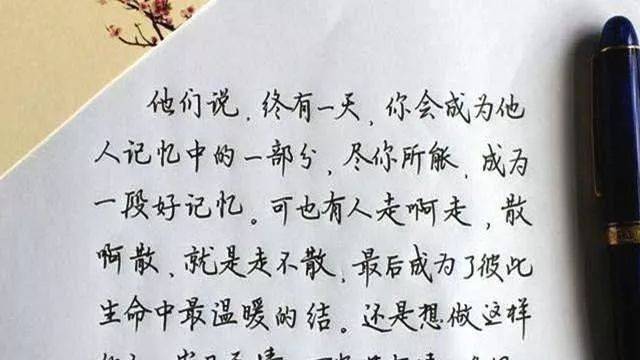 他们说，终有一天，你会成为他
人记忆中的一部分，尽你所能，成为
一段好记忆。可也有人走啊走，散
啊散，就是走不散，最后成为了彼此
生命中最温暖的结。还是想做这样